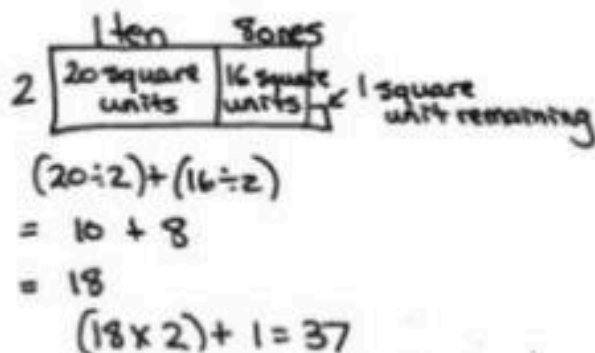 1 ten 8 ones
2 20 square units 16 square units 1 square unit remaining
(20÷2)+(16÷2)
= 10 + 8
= 18
(18 x 2) + 1 = 37